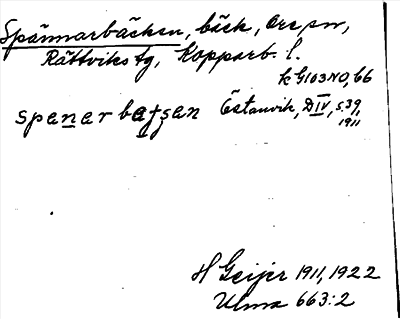 Spännarbäcken, bäck, Ore sn,
Rättviks tg, Kopparb. l.
k G103NO, 66
spenar batsen Östanvik, DIV, s.39,
1911
H Geijer 1911, 1922
Ulma 663:2